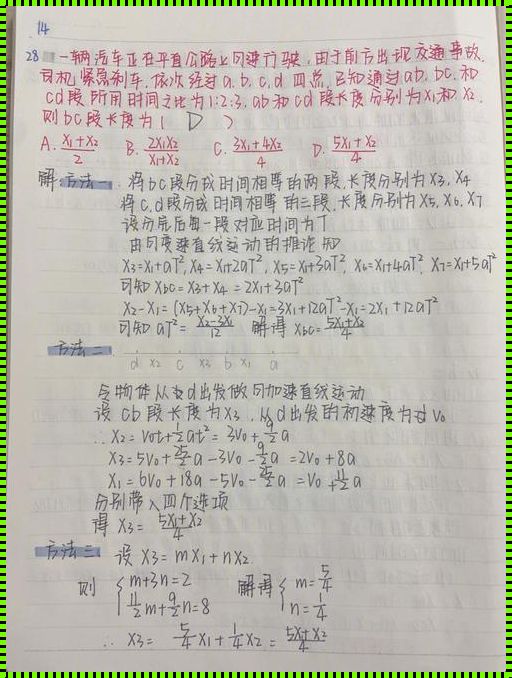 14
28 一辆汽车正在平直公路上匀速行驶,由于前方出现交通事故,
司机紧急刹车,依次经过a.b.c.d 四点,已知通过ab,bc,和
cd段所用时间之比为1:2:3,ab和cd段长度分别为x₁和x₂,
则bc段长度为( D )
A. (x₁+x₂)/2 B. 2x₁x₂/(x₁+x₂) C. (3x₁+4x₂)/4 D. (5x₁+x₂)/4
解:方法一. 将bc段分成时间相等的两段,长度分别为x₃,x₄
将c,d段分成时间相等的三段,长度分别为x₅,x₆,x₇
设分完后每一段对应时间为T
由匀变速直线运动的推论知
x₃=x₁+aT², x₄=x₁+2aT², x₅=x₁+3aT², x₆=x₁+4aT², x₇=x₁+5aT²
可知xbc=x₃+x₄=2x₁+3aT²
x₂-x₁=(x₅+x₆+x₇)-x₁=3x₁+12aT²-x₁=2x₁+12aT²
可知 aT²=(x₂-3x₁)/12 解得 xbc=(5x₁+x₂)/4
方法二
d x₂ c x₃ b x₁ a
令物体从d出发做匀加速直线运动
设cb段长度为x₃,从d出发的初速度为v₀
∴x₂=v₀t+½at²=3v₀+9/2a
x₃=5v₀+25/2a-3v₀-9/2a=2v₀+8a
x₁=6v₀+18a-5v₀-25/2a=v₀+11/2a
分别带入四个选项
得x₃=(5x₁+x₂)/4
方法三 设x₃=mx₁+nx₂
则 { m+3n=2 解得 { m=5/4
11/2m+9/2n=8 n=1/4
∴ x₃= 5/4x₁+1/4x₂=(5x₁+x₂)/4